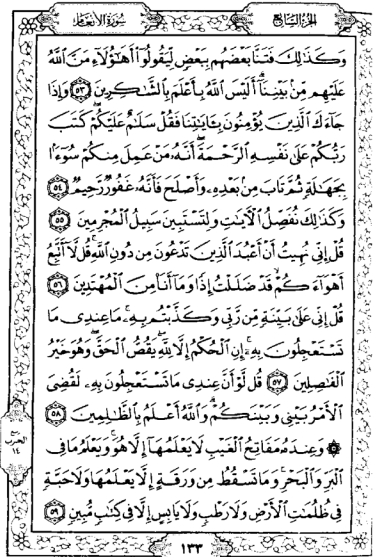 الجزء السابع
سورة الأنعام
وَكَذَٰلِكَ فَتَنَّا بَعْضَهُم بِبَعْضٍ لِّيَقُولُوٓا۟ أَهَٰٓؤُلَآءِ مَنَّ ٱللَّهُ
عَلَيْهِم مِّنۢ بَيْنِنَآ ۗ أَلَيْسَ ٱللَّهُ بِأَعْلَمَ بِٱلشَّٰكِرِينَ ٥٣ وَإِذَا
جَآءَكَ ٱلَّذِينَ يُؤْمِنُونَ بِـَٔايَٰتِنَا فَقُلْ سَلَٰمٌ عَلَيْكُمْ ۖ كَتَبَ
رَبُّكُمْ عَلَىٰ نَفْسِهِ ٱلرَّحْمَةَ ۖ أَنَّهُۥ مَنْ عَمِلَ مِنكُمْ سُوٓءًۢا
بِجَهَٰلَةٍ ثُمَّ تَابَ مِنۢ بَعْدِهِۦ وَأَصْلَحَ فَأَنَّهُۥ غَفُورٌ رَّحِيمٌ ٥٤
وَكَذَٰلِكَ نُفَصِّلُ ٱلْءَايَٰتِ وَلِتَسْتَبِينَ سَبِيلُ ٱلْمُجْرِمِينَ ٥٥
قُلْ إِنِّى نُهِيتُ أَنْ أَعْبُدَ ٱلَّذِينَ تَدْعُونَ مِن دُونِ ٱللَّهِ ۚ قُل لَّآ أَتَّبِعُ
أَهْوَآءَكُمْ ۙ قَدْ ضَلَلْتُ إِذًا وَمَآ أَنَا۠ مِنَ ٱلْمُهْتَدِينَ ٥٦
قُلْ إِنِّى عَلَىٰ بَيِّنَةٍ مِّن رَّبِّى وَكَذَّبْتُم بِهِۦ ۚ مَا عِندِى مَا
تَسْتَعْجِلُونَ بِهِۦٓ ۚ إِنِ ٱلْحُكْمُ إِلَّا لِلَّهِ ۖ يَقُصُّ ٱلْحَقَّ ۖ وَهُوَ خَيْرُ
ٱلْفَٰصِلِينَ ٥٧ قُل لَّوْ أَنَّ عِندِى مَا تَسْتَعْجِلُونَ بِهِۦ لَقُضِىَ
ٱلْأَمْرُ بَيْنِى وَبَيْنَكُمْ ۗ وَٱللَّهُ أَعْلَمُ بِٱلظَّٰلِمِينَ ٥٨
۞ وَعِندَهُۥ مَفَاتِحُ ٱلْغَيْبِ لَا يَعْلَمُهَآ إِلَّا هُوَ ۚ وَيَعْلَمُ مَا فِى
ٱلْبَرِّ وَٱلْبَحْرِ ۚ وَمَا تَسْقُطُ مِن وَرَقَةٍ إِلَّا يَعْلَمُهَا وَلَا حَبَّةٍ
فِى ظُلُمَٰتِ ٱلْأَرْضِ وَلَا رَطْبٍ وَلَا يَابِسٍ إِلَّا فِى كِتَٰبٍ مُّبِينٍ ٥٩
الحزب
١٤
١٣٣